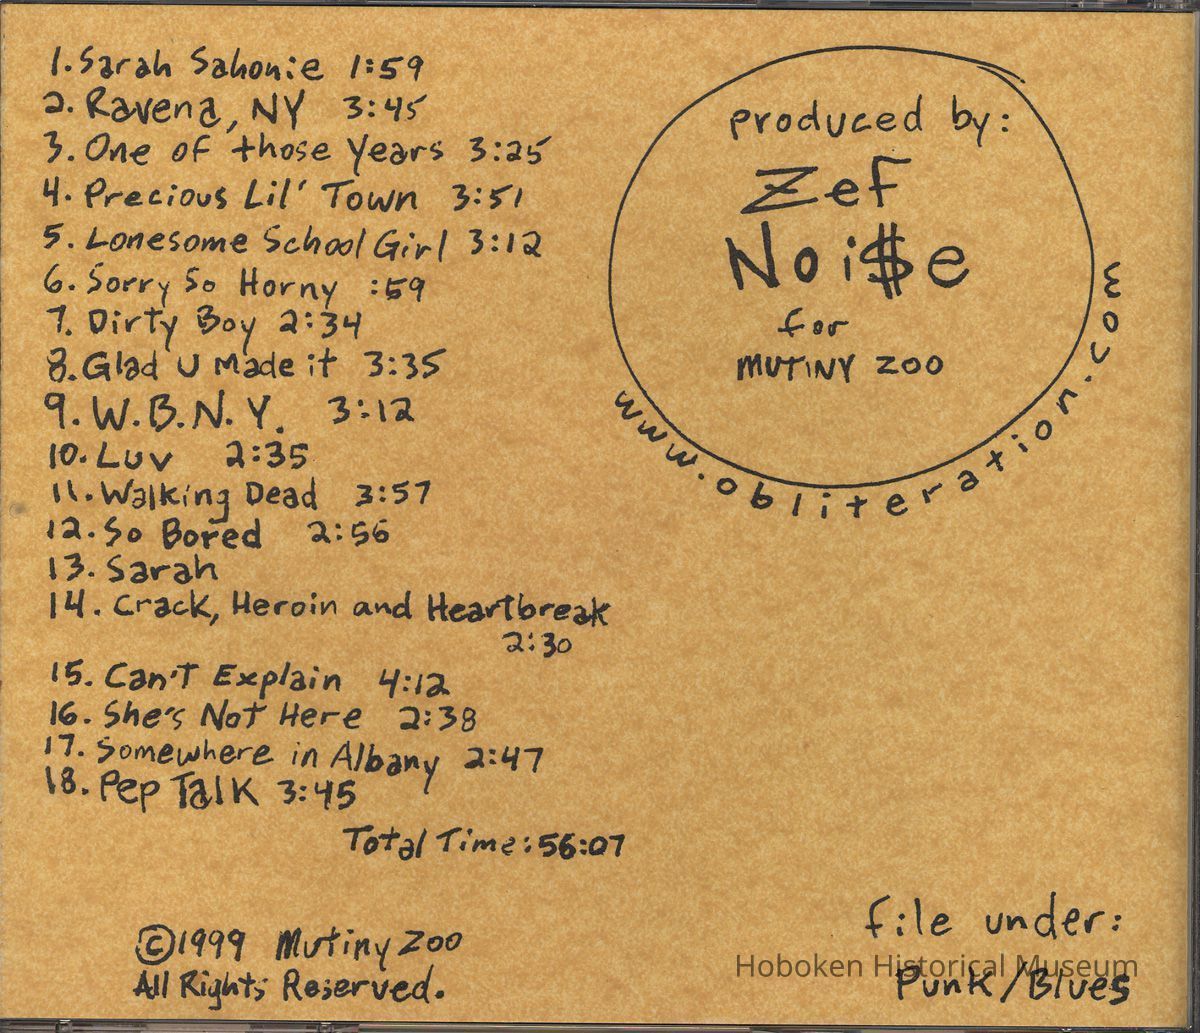 1. Sarah Sahonie 1:59
2. Ravena, NY 3:45
3. One of those Years 3:25
4. Precious Lil' Town 3:51
5. Lonesome School Girl 3:12
6. Sorry So Horny :59
7. Dirty Boy 2:34
8. Glad U Made it 3:35
9. W.B.N.Y. 3:12
10. Luv 2:35
11. Walking Dead 3:57
12. So Bored 2:56
13. Sarah
14. Crack, Heroin and Heartbreak
2:30
15. Can't Explain 4:12
16. She's Not Here 2:38
17. Somewhere in Albany 2:47
18. Pep Talk 3:45
Total Time: 56:07
©1999 Mutiny Zoo
All Rights Reserved.
produced by:
Zef
Noi$e
for
MUTINY ZOO
www.obliteration.com
file under:
Punk/Blues
Hoboken Historical Museum